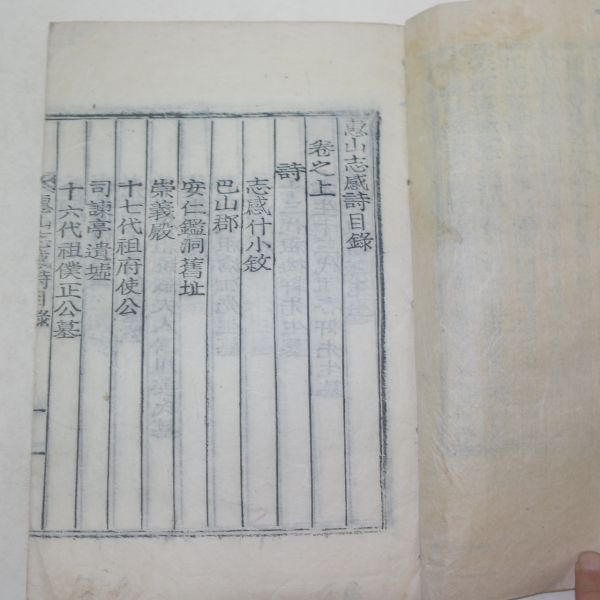 惠山志感詩目錄
卷之上
詩
志感什小敘
巴山郡
安仁鑑洞舊址
崇義殿
十七代祖府使公
司諫亭遺墟
十六代祖僕正公墓
惠山志感詩目錄
一